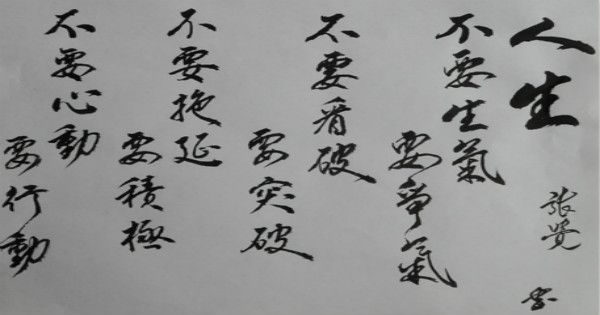 人生
張覺
書
不要生氣
要爭氣
不要看破
要突破
不要拖延
要積極
不要心動
要行動